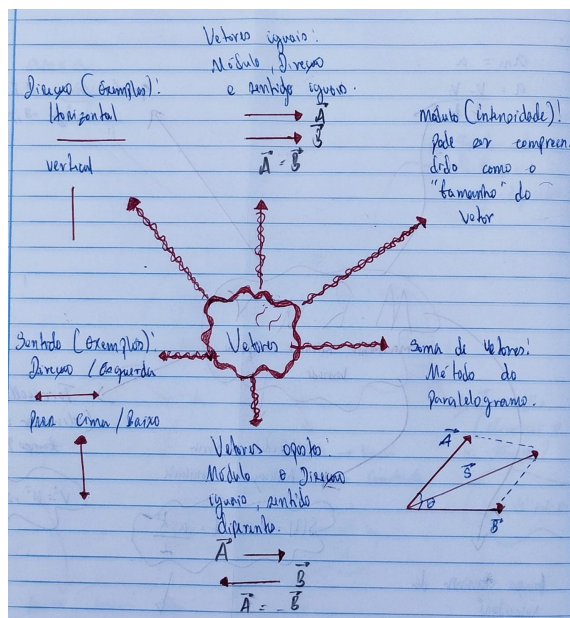 Vetores iguais:
Módulo, Direção
e sentido iguais.
A
B
A = B
Direção (Exemplos):
Horizontal
vertical
Módulo (intensidade):
pode ser compreen-
dido como o
"tamanho" do
vetor
Vetores
Sentido (exemplos):
Direção / Esquerda
para cima / Baixo
Soma de vetores:
Método do
paralelogramo.
A
S
θ
B
Vetores opostos:
Módulo e Direção
iguais, sentido
diferente.
A
B
A = - B